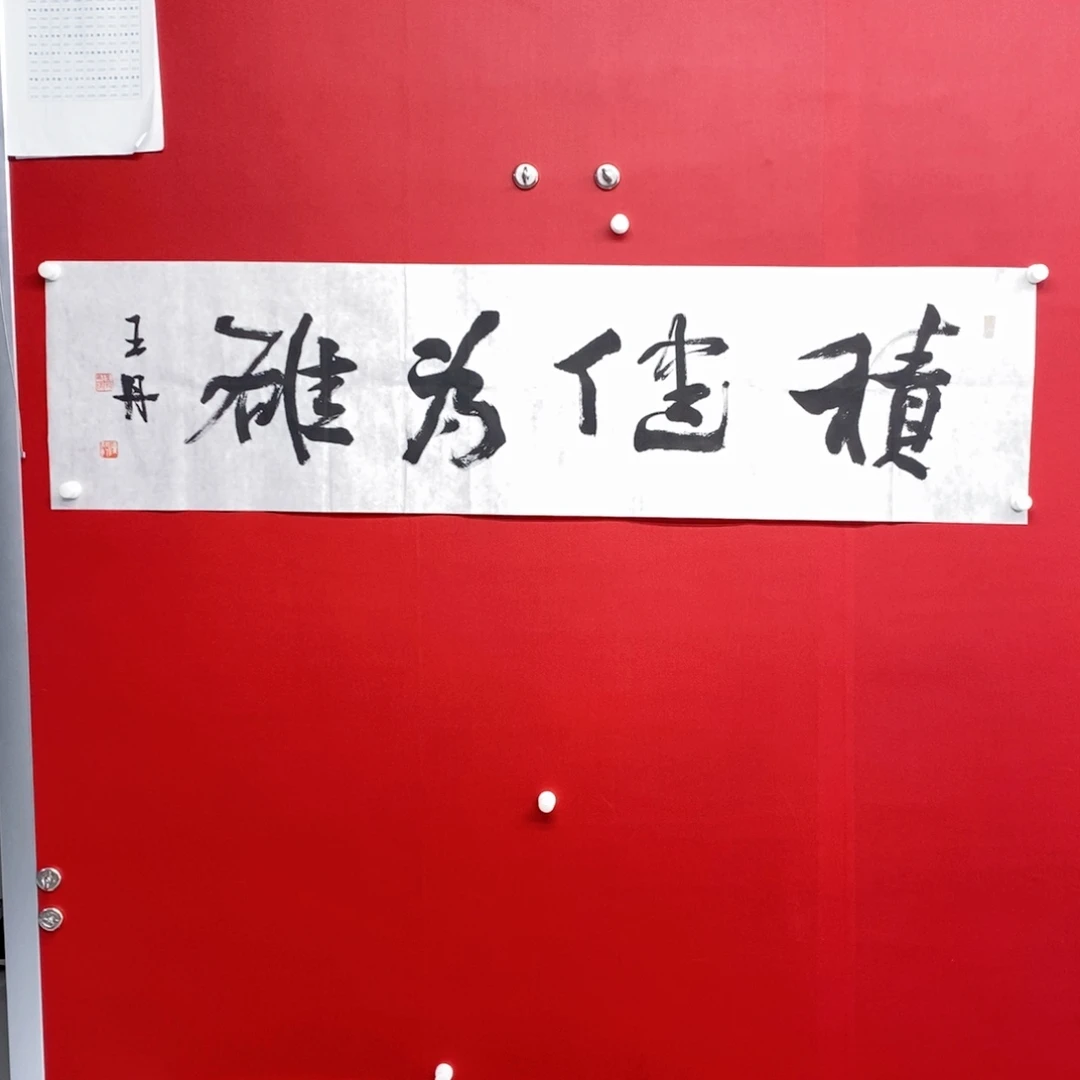 積健为雄
王丹